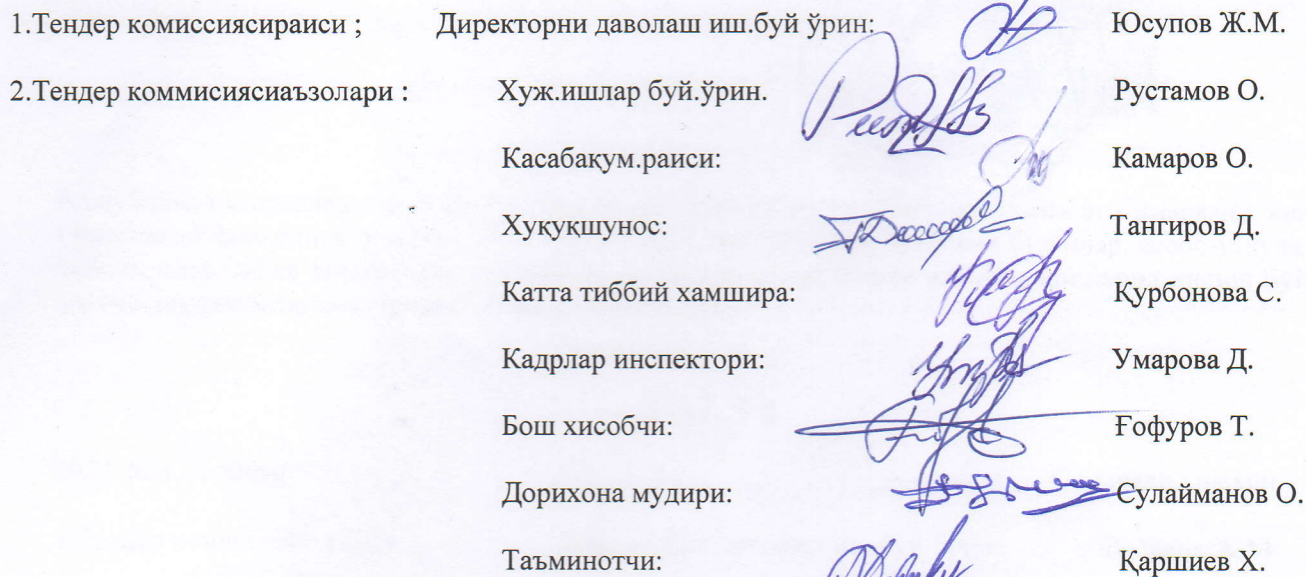 1.Тендер комиссиясираиси ; Директорни даволаш иш.буй ўрин: Юсупов Ж.М.
2.Тендер коммисиясиаъзолари : Хуж.ишлар буй.ўрин. Рустамов О.
Касабақум.раиси: Камаров О.
Хуқуқшунос: Тангиров Д.
Катта тиббий хамшира: Қурбонова С.
Кадрлар инспектори: Умарова Д.
Бош хисобчи: Ғофуров Т.
Дорихона мудири: Сулайманов О.
Таъминотчи: Қаршиев Х.